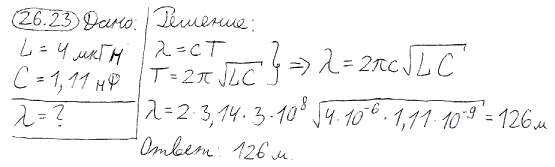 26.23 Дано:
L = 4 мкГн
C = 1,11 нФ
λ = ?
Решение:
λ = cT
T = 2π√LC } ⇒ λ = 2πc√LC
λ = 2·3,14·3·10⁸ √4·10⁻⁶·1,11·10⁻⁹ = 126 м
Ответ: 126 м.